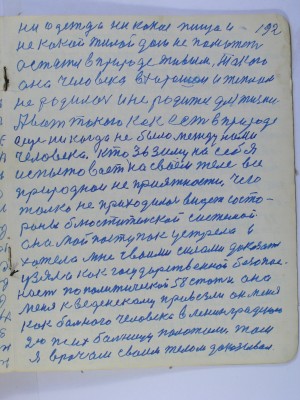 ни одежда ни какая пища и - 192
не какой жилой дом не поможет
остатся в природе живым, такого
она человека в хорошом и теплом
не родилась и не родит для жизни.
А вот такого как есть в природе
еще никогда не было между нами
человека. кто зв зиму на себя
испытовает на своём теле все
природной не приятности, чего
только не приходилося видеть состо-
роны блюстительской системой.
она мой поступок устрела и
хотела мне своими силами доказать
узяла как государственной безопас-
ност по политической 58 стати она
меня к веденскому привезли он меня
как больного человека в ленинградскую
2ю псих больницу положили там
Я врачам своим телом доказовал